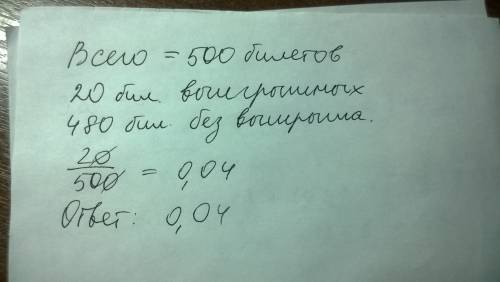 Всего = 500 билетов
20 бил. выигрышных
480 бил. без выигрыша.
20/500 = 0,04
Ответ: 0,04